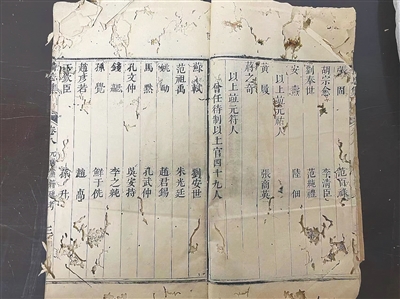 固 范百祿
胡宗愈 李清臣
劉奉世 范純禮
安燾 陸佃
以上並元祐人
黃履 張商英
蔣之奇
以上並元符人
曾任待制以上官四十九人
蘇軾 劉安世
范祖禹 朱光庭
姚勔 趙君錫
馬默 孔武仲
孔文仲 吳安持
錢勰 李之純
孫覺 鮮于侁
趙彥若 趙卨
臣 升
卷八